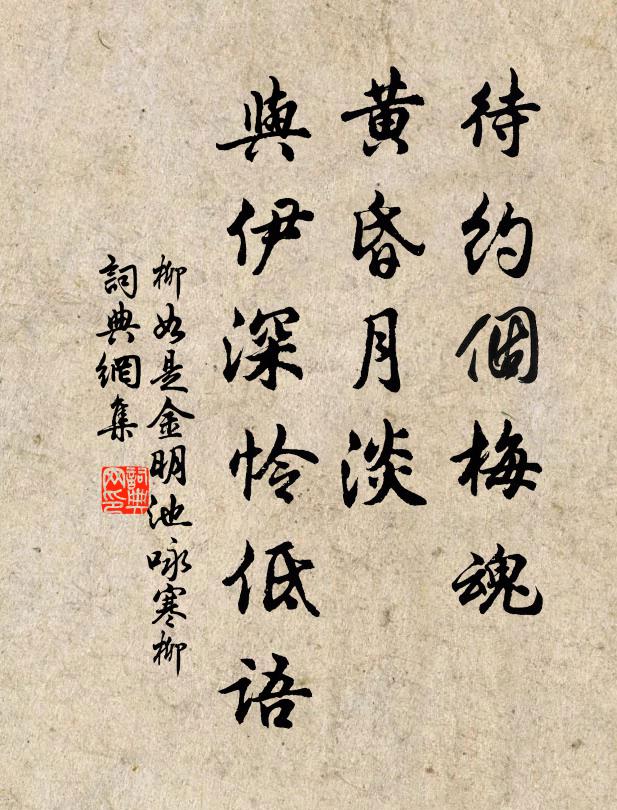 待約個梅魂
黃昏月淡
與伊深怜低語
柳如是金明池詠寒柳
詞典網集
詞典网印